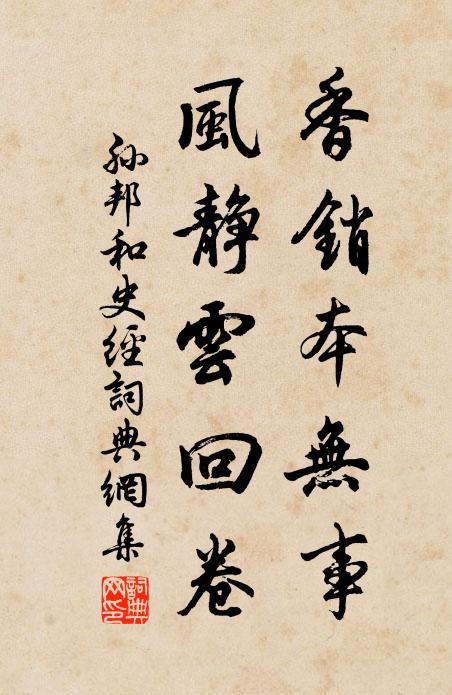 香銷本無事
風靜雲回卷
孫邦和史經詞典網集
詞典網印